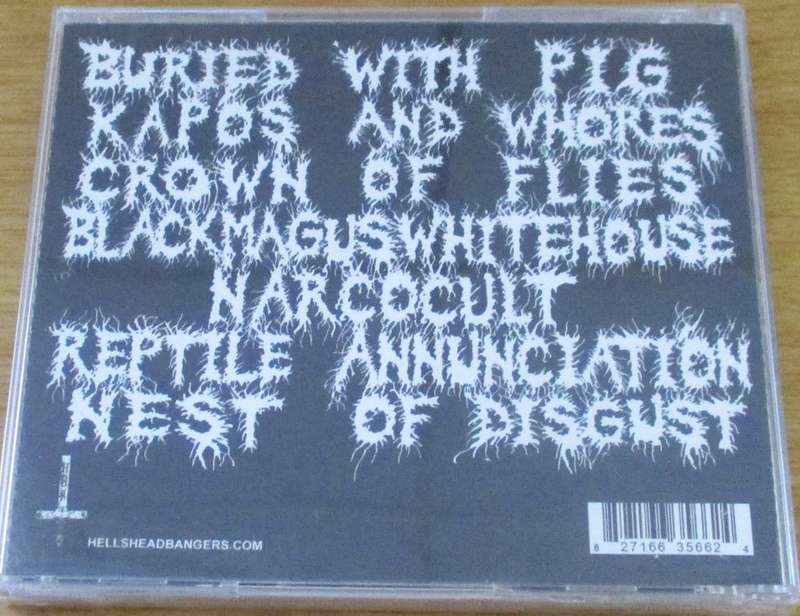 BURIED WITH PIG
KAPOS AND WHORES
CROWN OF FLIES
BLACK MAGUS WHITE HOUSE
NARCOCULT
REPTILE ANNUNCIATION
NEST OF DISGUST
HELLSHEADBANGERS.COM
8 27166 35662 4